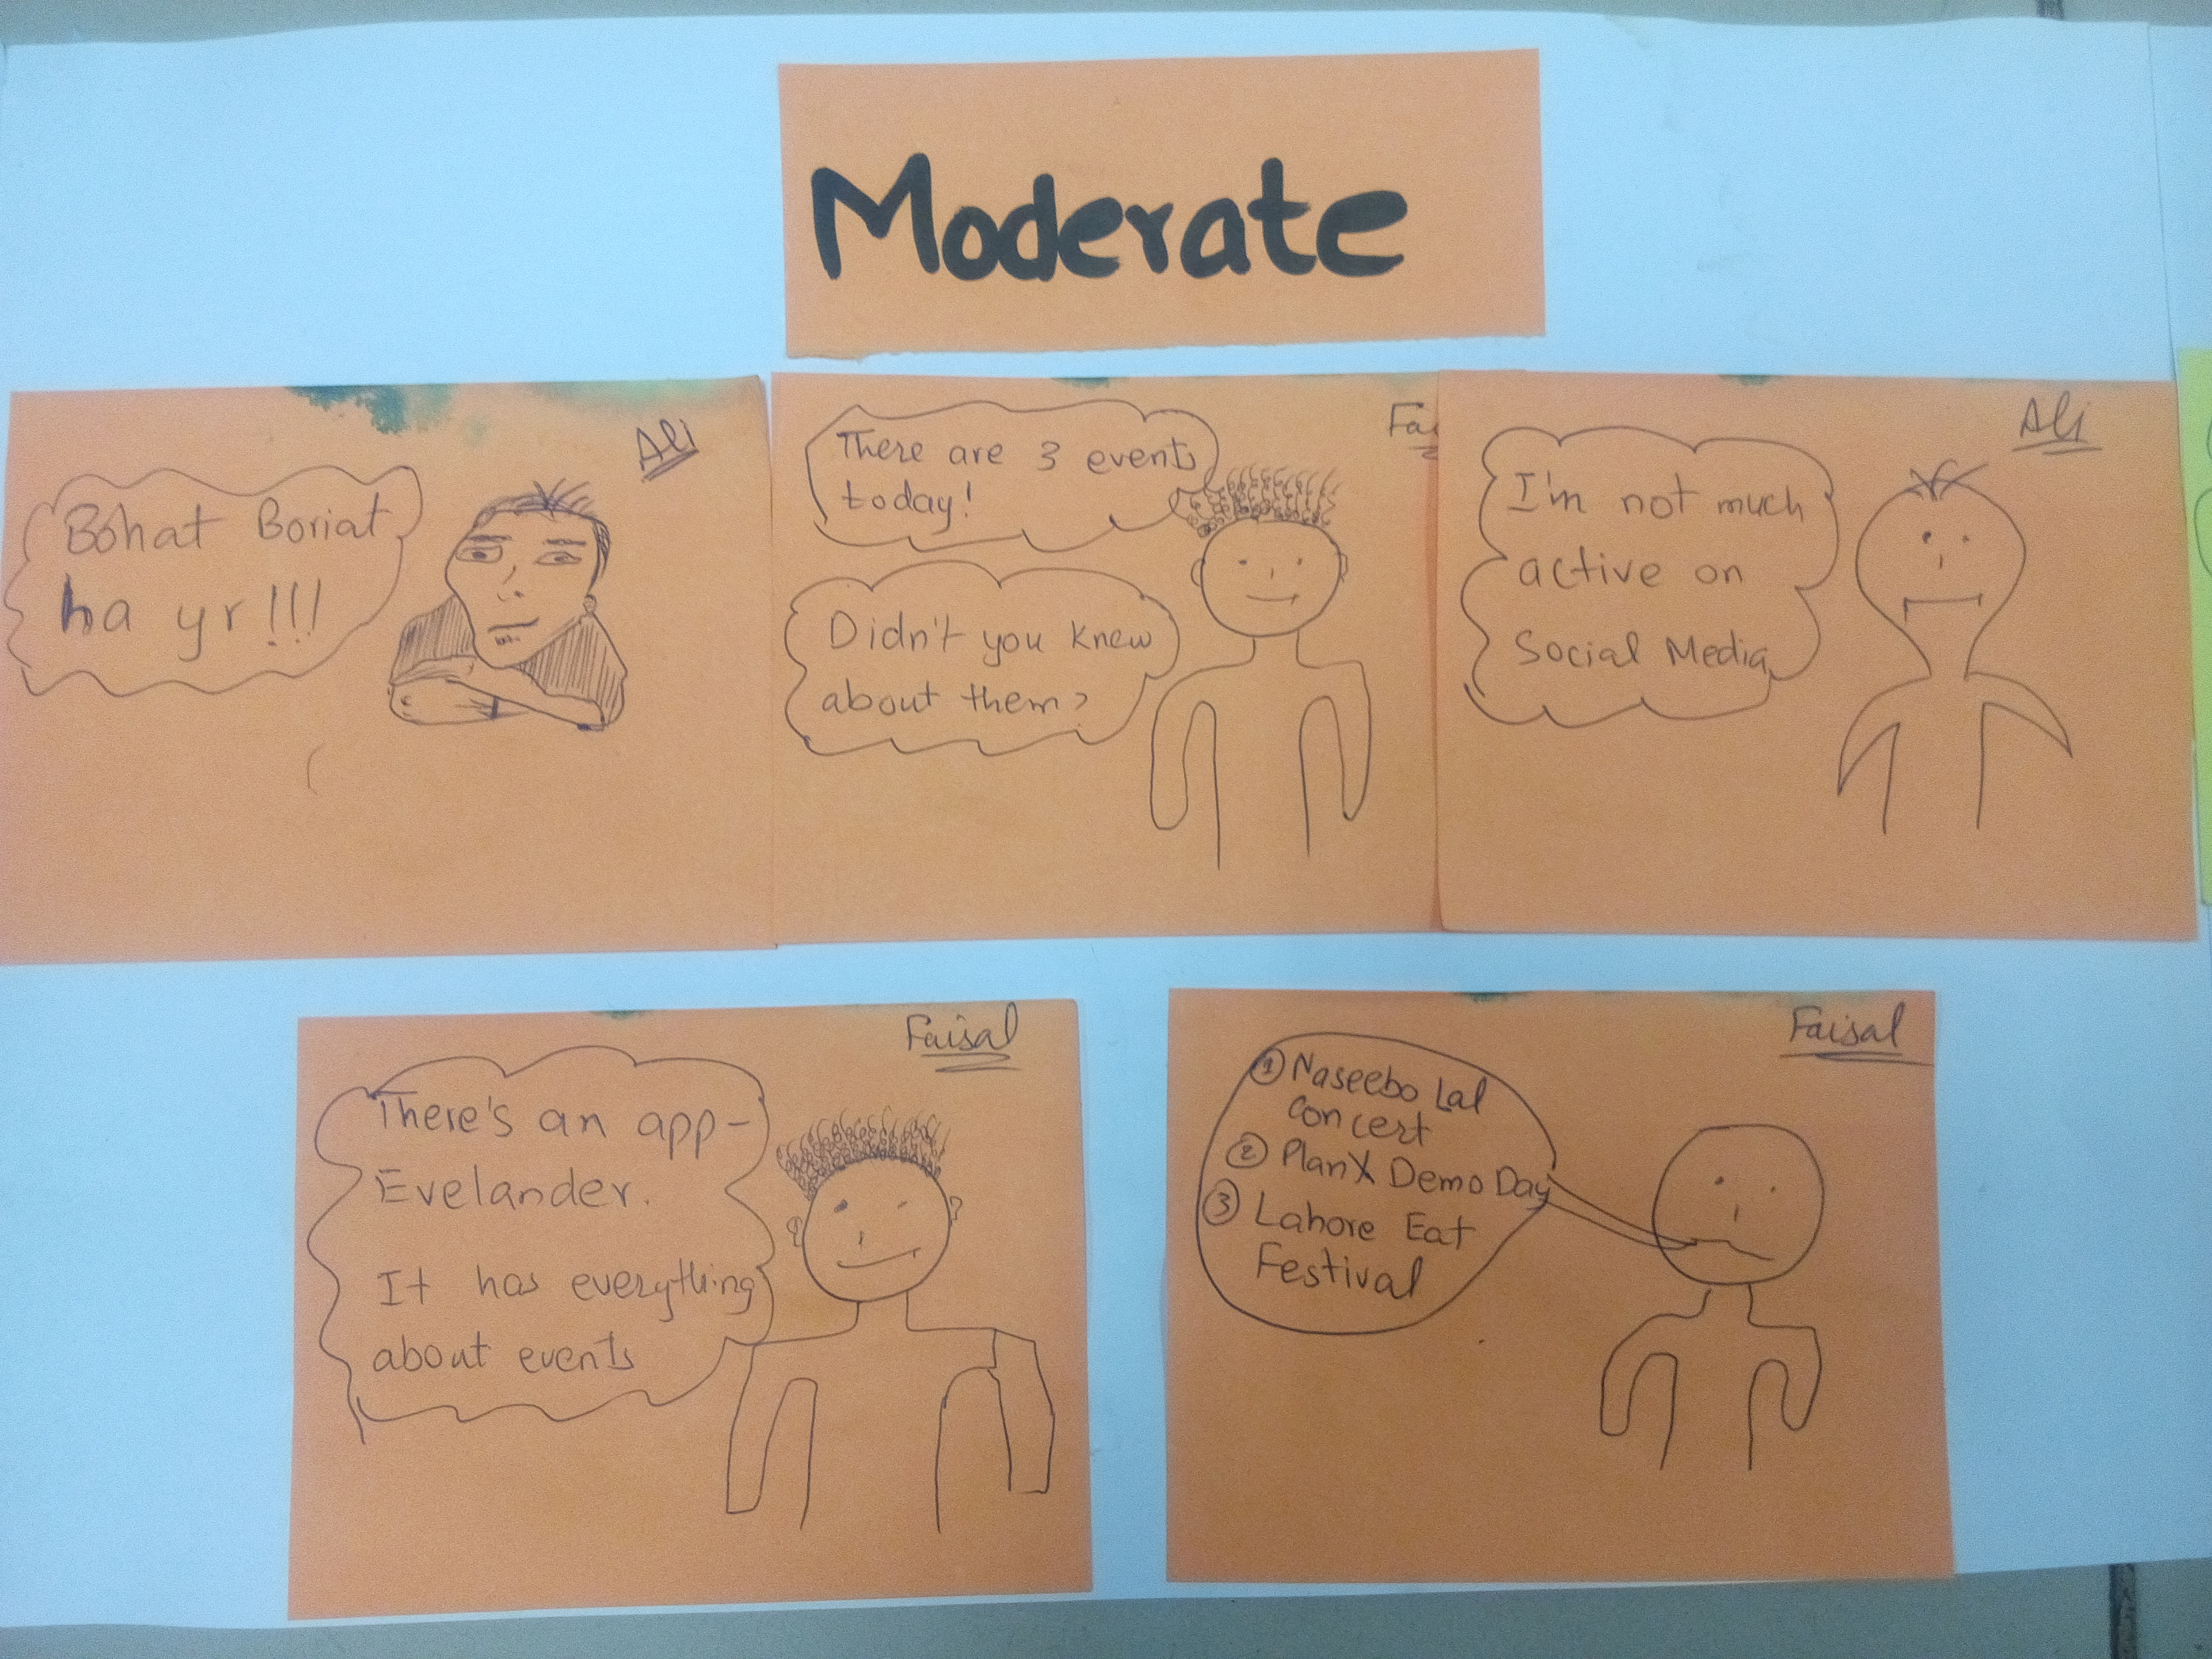 Moderate
Ali
Bohat Boriat
ha yr!!!
Fai
There are 3 events
today!
Didn't you knew
about them?
Ali
I'm not much
active on
Social Media
Faisal
There's an app-
Evelander.
It has everything
about events
Faisal
① Naseebo Lal
concert
② PlanX Demo Day
③ Lahore Eat
Festival